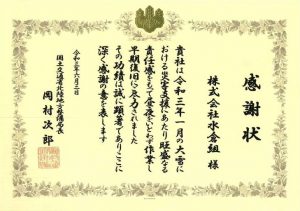 感謝状
株式会社水倉組 様
貴社は令和三年一月の大雪に
おける災害支援にあたり旺盛なる
責任感をもって昼夜をいとわず作業し
早期復旧に尽力されました
その功績は誠に顕著でありここに
深く感謝の意を表します
令和三年六月三日
国土交通省北陸地方整備局長
岡村次郎